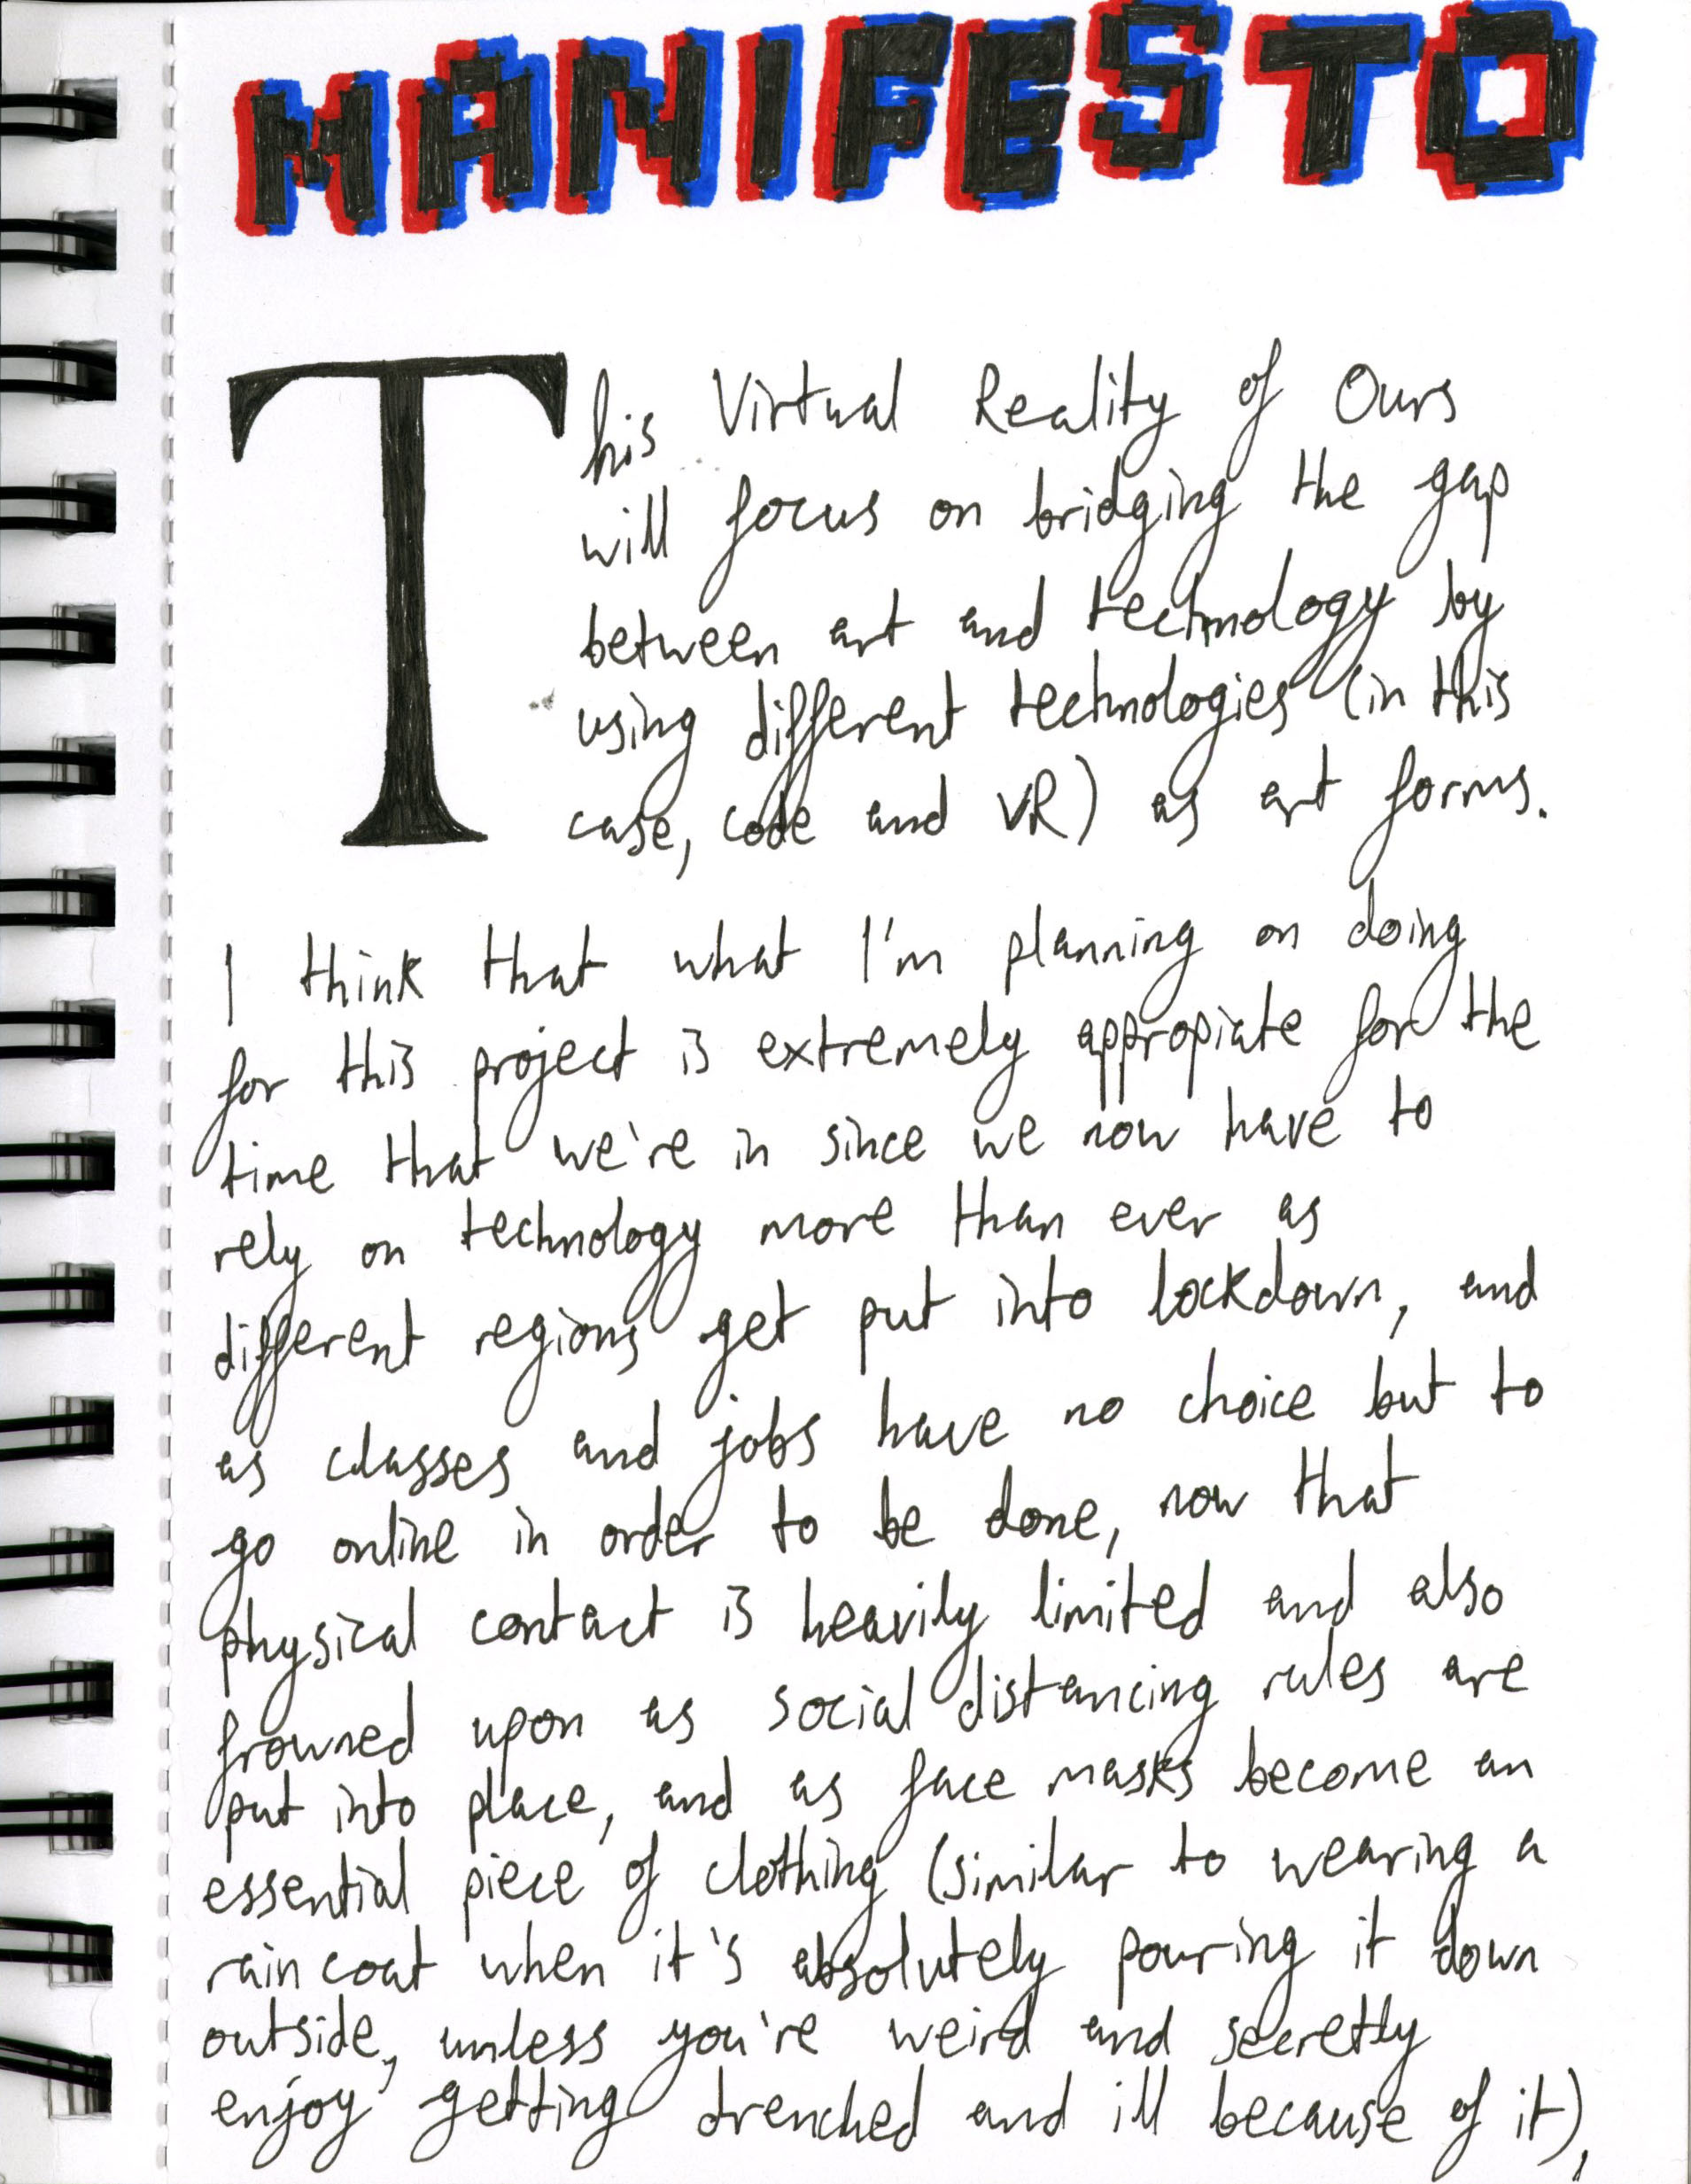 MANIFESTO
This Virtual Reality of Ours
will focus on bridging the gap
between art and technology by
using different technologies (in this
case, code and VR) as art forms.
I think that what I'm planning on doing
for this project is extremely appropiate for the
time that we're in since we now have to
rely on technology more than ever as
different regions get put into lockdown, and
as classes and jobs have no choice but to
go online in order to be done, now that
physical contact is heavily limited and also
frowned upon as social distancing rules are
put into place, and as face masks become an
essential piece of clothing (similar to wearing a
rain coat when it's absolutely pouring it down
outside, unless you're weird and secretly
enjoy getting drenched and ill because of it),